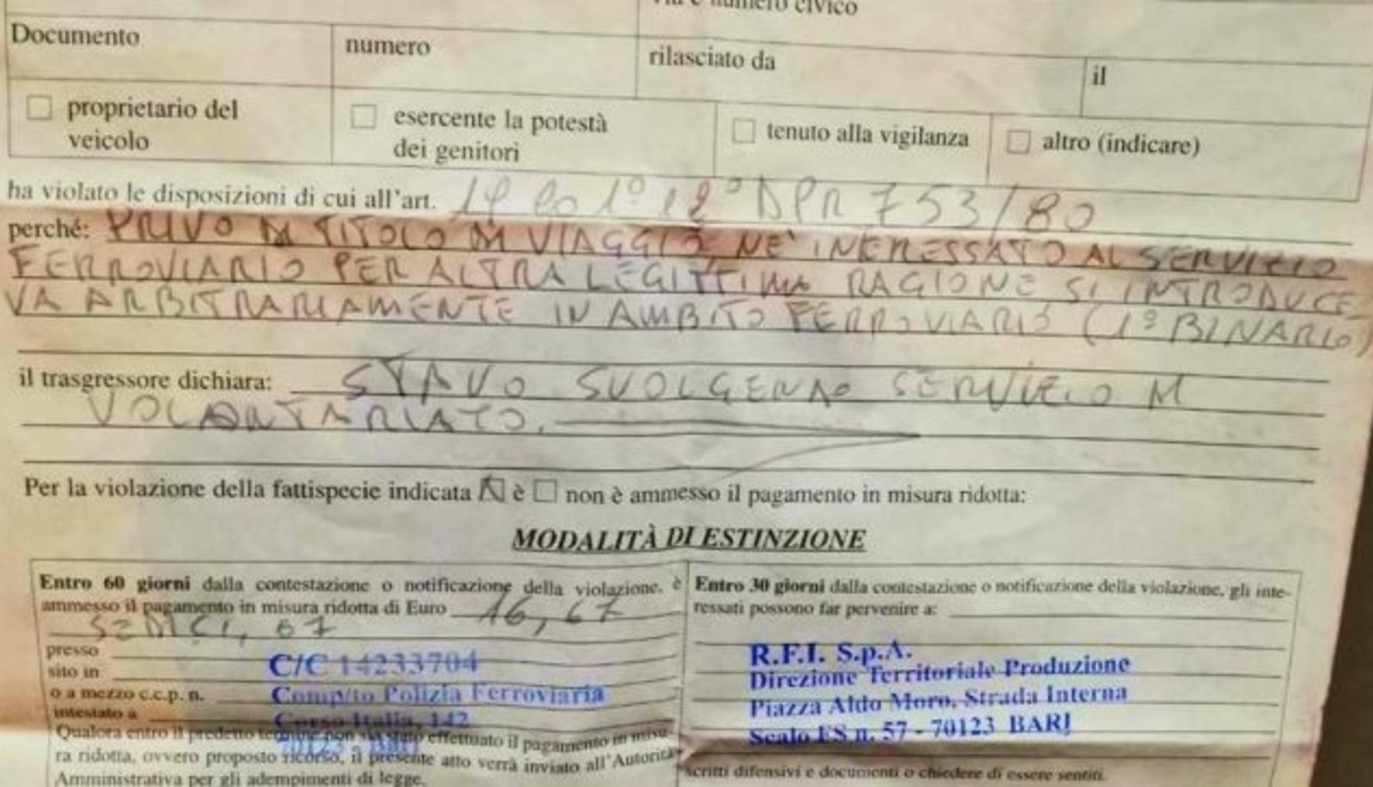 numero civico
Documento numero rilasciato da il
☐ proprietario del veicolo ☐ esercente la potestà dei genitori ☐ tenuto alla vigilanza ☐ altro (indicare)
ha violato le disposizioni di cui all'art. 19 co 1° e 2° DPR 753/80
perché: PRIVO DI TITOLO DI VIAGGIO, NE' INTERESSATO AL SERVIZIO
FERROVIARIO PER ALTRA LEGITTIMA RAGIONE, SI INTRODUCE
VA ARBITRARIAMENTE IN AMBITO FERROVIARIO (1° BINARIO)
il trasgressore dichiara: STAVO SVOLGENDO SERVIZIO DI
VOLONTARIATO.
Per la violazione della fattispecie indicata ☒ è ☐ non è ammesso il pagamento in misura ridotta:
MODALITÀ DI ESTINZIONE
Entro 60 giorni dalla contestazione o notificazione della violazione, è
ammesso il pagamento in misura ridotta di Euro 16,67
SEDICI, 67
presso
sito in C/C 14233704
o a mezzo c.c.p. n. Comp/to Polizia Ferroviaria
intestato a Corso Italia, 142
70123 BARI
Qualora entro il predetto termine non sia stato effettuato il pagamento in misu-
ra ridotta, ovvero proposto ricorso, il presente atto verrà inviato all'Autorità
Amministrativa per gli adempimenti di legge.
Entro 30 giorni dalla contestazione o notificazione della violazione, gli inte-
ressati possono far pervenire a:
R.F.I. S.p.A.
Direzione Territoriale Produzione
Piazza Aldo Moro, Strada Interna
Scalo FS n. 57 - 70123 BARI
scritti difensivi e documenti o chiedere di essere sentiti.